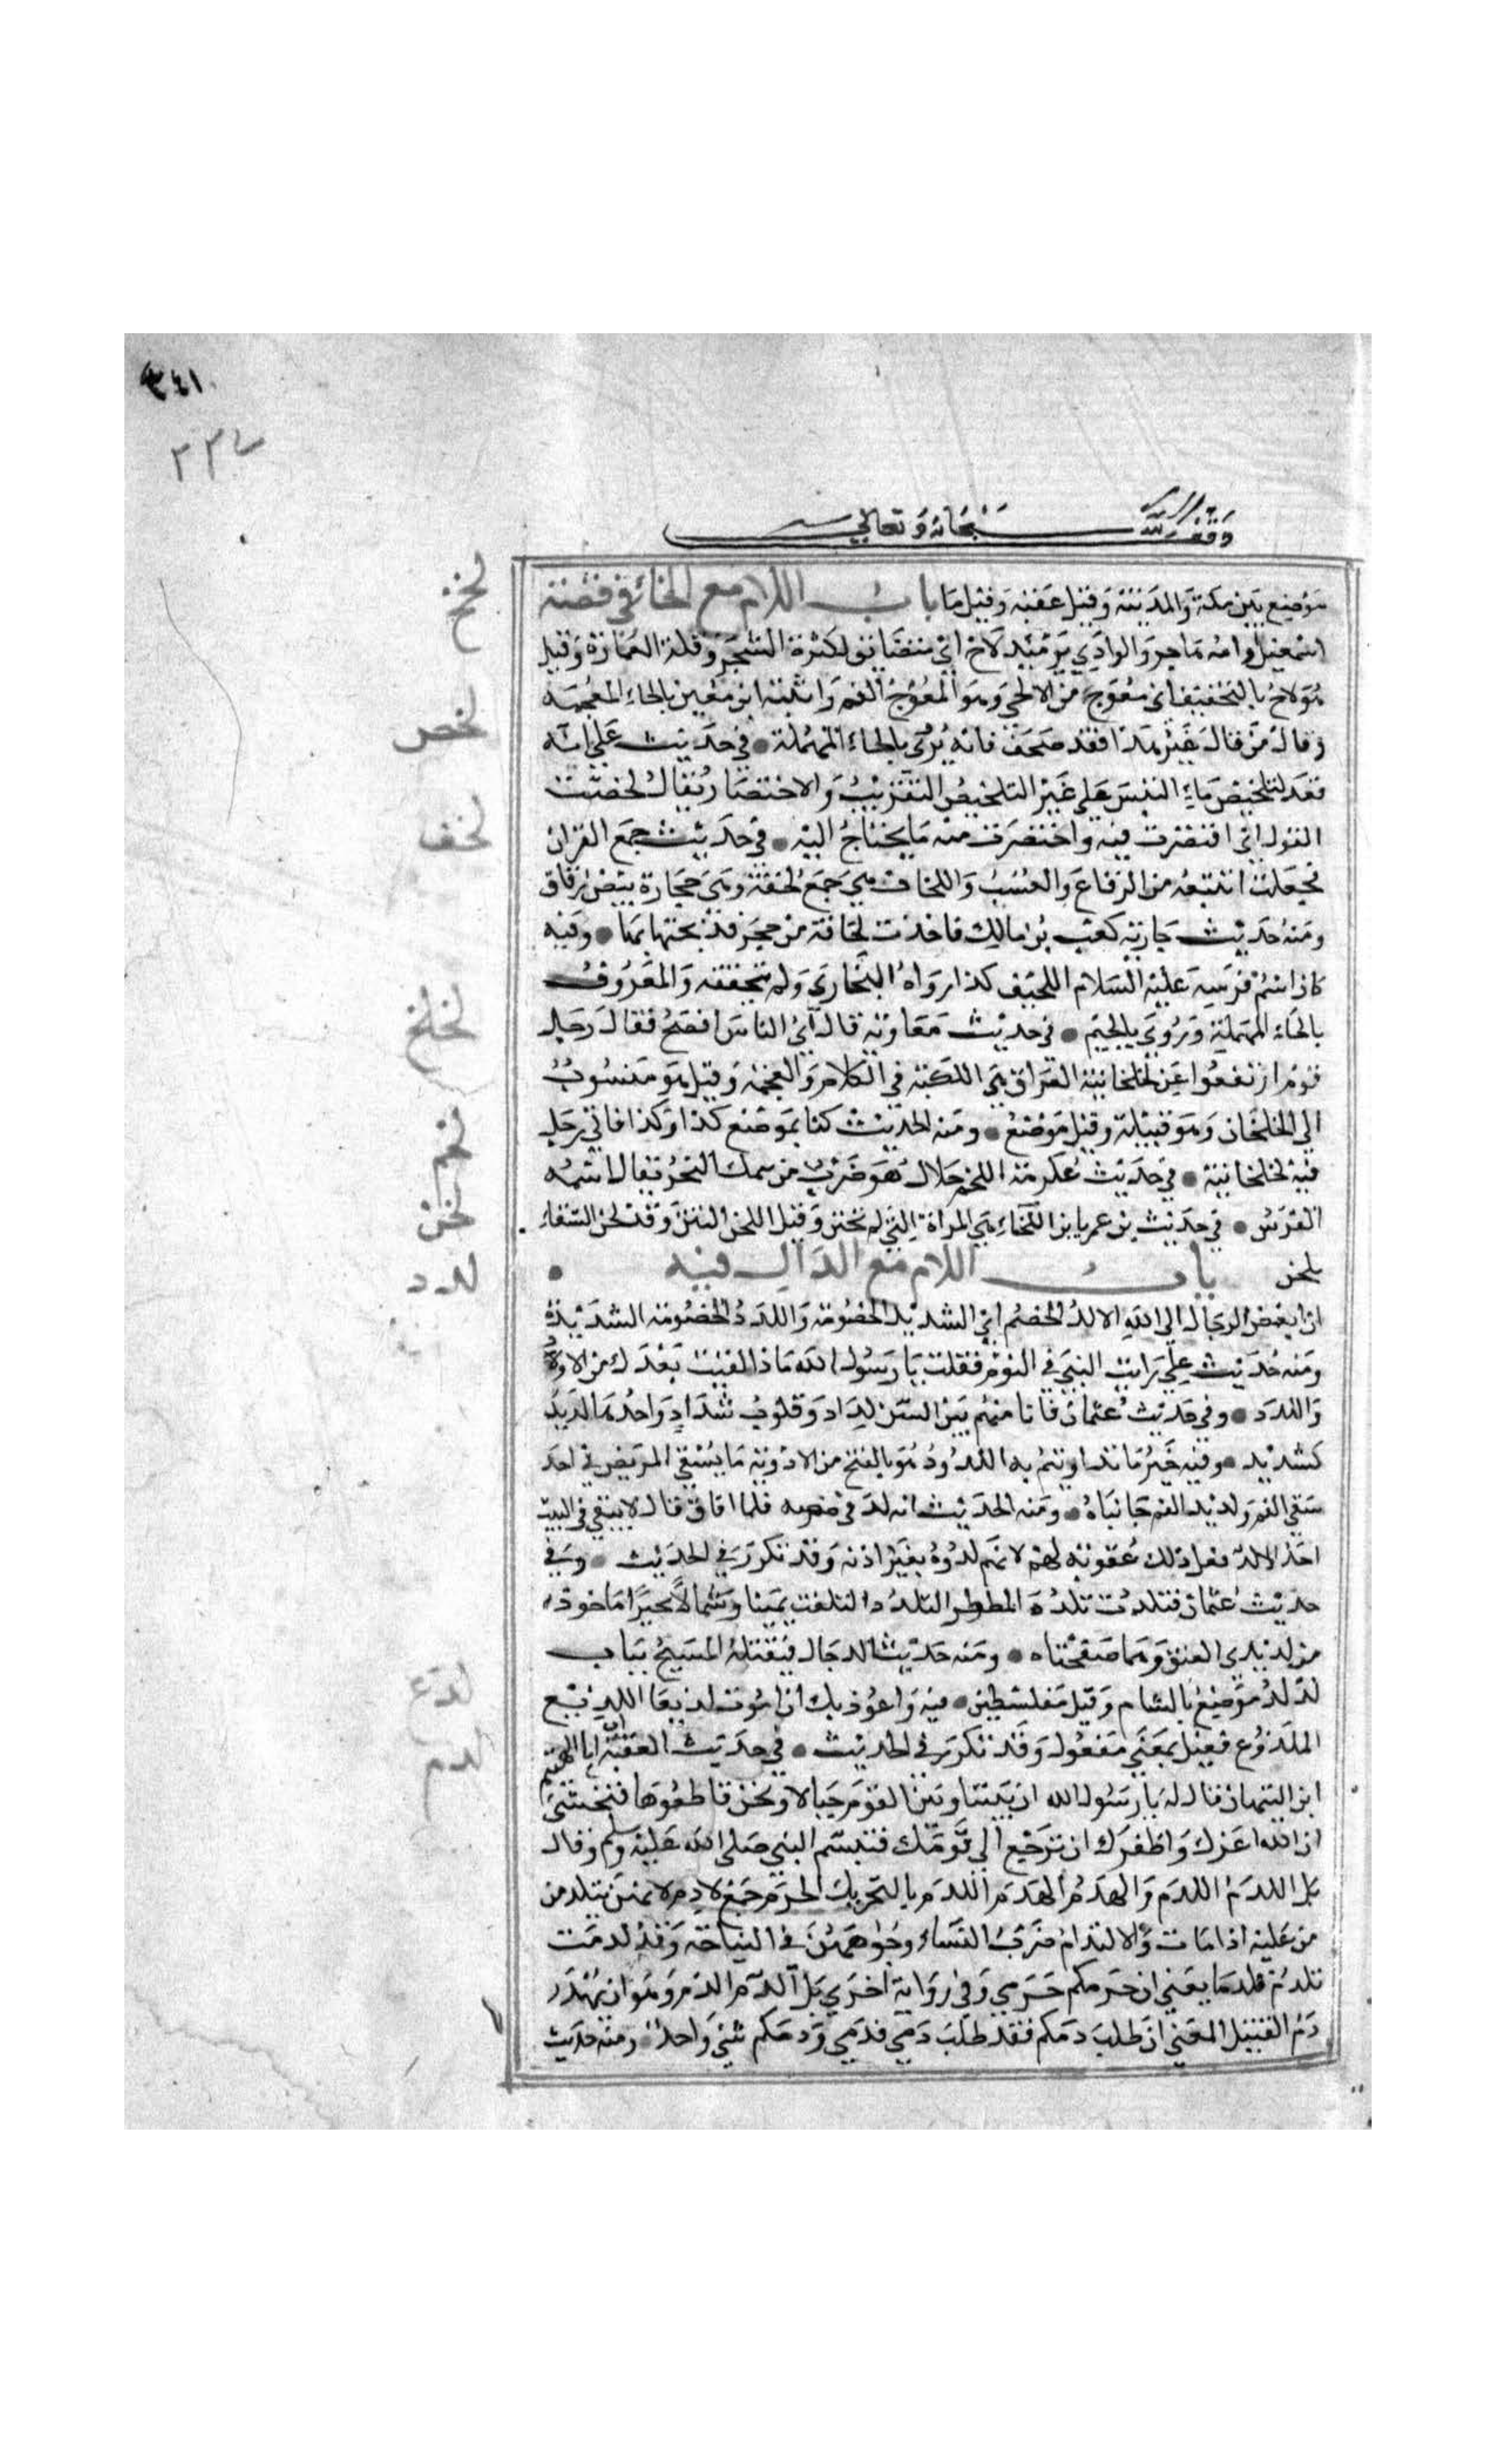 ٣٤١
وقف لله سبحانه وتعالى
موضع بين مكة والمدينة وقيل عقبة وقيل ما باب اللام مع الخاء في قصة
لخخ
اسمعيل وامه هاجر والوادي يومئذ لاخ اي متضايق لكثرة الشجر وقلة العمارة وقيل
هو لاخ بالتخفيف اي معوج من الالخى وهو المعوج الفم واثبته ابن معين بالخاء المعجمة
لخص
وقال من قال غير هذا فقد صحف فانه يروى بالحاء المهملة • في حديث علي انه
قعد لتلخيص ما التبس على غيره التلخيص التقريب والاختصار يقال لخصت
لخف
القول اي اقتصرت فيه واختصرت منه ما يحتاج اليه • في حديث جمع القران
فجعلت اتتبعه من الرقاع والعسب واللخاف هي جمع لخفة وهي حجارة بيض رقاق
ومنه حديث جارية كعب بن مالك فاخذت لخافة من حجر فذبحتها بها • وفيه
كان اسم فرسه عليه السلام اللخيف كذا رواه البخاري ولم يتحققه والمعروف
لخلخ
بالحاء المهملة وروي بالجيم • في حديث معاوية قال اي الناس افصح فقال رجل
قوم ارتفعوا عن لخلخانية العراق هي اللكنة في الكلام والعجمة وقيل هو منسوب
الى لخلخان وهو قبيلة وقيل موضع • ومنه الحديث كنا بموضع كذا وكذا فاتى رجل
لخم
فيه لخلخانية • في حديث عكرمة اللخم حلال هو ضرب من سمك البحر يقال اسمه
لخن
القرش • في حديث بن عمر يا بن اللخناء هي المراة التي لم تختن وقيل اللخن النتن وقد لخن السقاء
يلخن باب اللام مع الدال فيه •
لدد
ان ابغض الرجال الى الله الالد الخصم اي الشديد الخصومة واللدد الخصومة الشديدة
ومنه حديث علي رايت النبي في النوم فقلت يا رسول الله ماذا لقيت بعدك من الاود
واللدد • وفي حديث عثمان فانا منهم بين السن لداد وقلوب شداد واحدها لديد
كشديد • وفيه خير ما تداويتم به اللدود هو بالفتح من الادوية ما يسقى المريض في احد
شقي الفم ولديدا الفم جانباه • ومنه الحديث انه لد في مرضه فلما افاق قال لا يبقى في البيت
احد الا لد فعل ذلك عقوبة لهم لانهم لدوه بغير اذنه وقد تكرر في الحديث • وفي
حديث عثمان فتلددت تلدد المضطر التلدد التلفت يمينا وشمالا تحيرا ماخوذ
من لديدي العنق وهما صفحتاه • ومنه حديث الدجال فيقتله المسيح بباب
لدغ
لد لد موضع بالشام وقيل بفلسطين • فيه واعوذ بك ان اموت لديغا اللديغ
لدم
الملدوغ فعيل بمعنى مفعول وقد تكرر في الحديث • في حديث العقبة ان ابا الهيثم
ابن التيهان قال له يا رسول الله ان بيننا وبين القوم حبالا ونحن قاطعوها فنخشى
ان الله اعزك واظفرك ان ترجع الى قومك فتبسم النبي صلى الله عليه وسلم وقال
بل اللدم اللدم والهدم الهدم اللدم بالتحريك الحرم جمع لادم لانهن يلتدمن
من عليه اذا مات والالتدام ضرب النساء وجوههن في النياحة وقد لدمت
تلدم لدما يعني ان حرمكم حرمي وفي رواية اخرى بل الدم الدم وهو ان يهدر
دم القتيل المعنى ان طلب دمكم فقد طلب دمي فدمي ودمكم شيء واحد • ومنه حديث